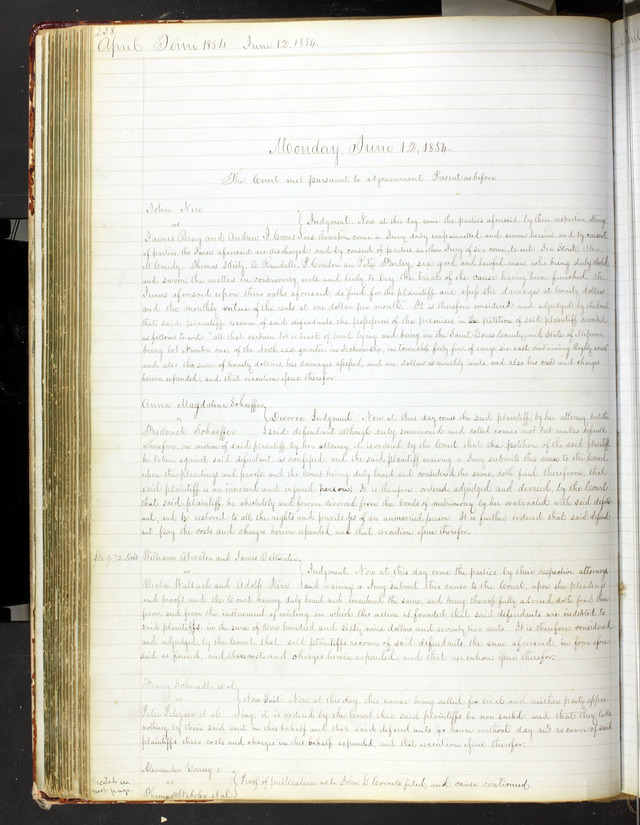 238
April Term 1854. June 12, 1854.
Monday, June 12, 1854.
The Court met pursuant to adjournment. Present as before.
John New
vs } Judgment. Now at this day, come the parties aforesaid by their respective attorneys,
James Bray and Andrew J. Coons and thereupon came a Jury duly empannelled and sworn herein, and by consent
of parties, the Jurors aforesaid are discharged and by consent of parties another Jury of six come to wit:
Thomas C. Randall, P. Condon Peter Parley, six good and lawful men, who being duly elected
and sworn the matters in controversy well and truly to try, the trial of the cause having been finished, the
Jurors aforesaid upon their oaths aforesaid, do find for the plaintiff and assess the damages at twenty dollars,
and the monthly value of the rents at one dollar per month. It is therefore considered and adjudged by the Court
that said plaintiff recover of said defendants the possession of the premises in the petition of said plaintiff described
as follows to wit: all that certain lot or tract of land lying and being in the Saint Louis County and State of Missouri
being lot Number one of the North east quarter in Section six, in township forty five of range six east containing Eighty acres
and also the sum of twenty dollars, his damages assessed, and one dollar as monthly rents, and also his costs and charges
herein expended and that execution issue therefor.
Anna Magdalena Schaeffer
vs } Divorce Judgment. Now at this day comes the said plaintiff, by her attorney, but the
Frederick Schaeffer said defendant although duly summoned and called comes not but makes default.
wherefore, on motion of said plaintiff by her attorney, it is ordered by the Court, that the petition of the said plaintiff
be taken against said defendant as confessed, and the said plaintiff waiving a Jury submits this cause to the Court
upon the pleadings and proofs, and the Court having duly heard and considered the same, doth find therefrom, that
said plaintiff is an innocent and injured person. It is therefore ordered, adjudged and decreed by the Court,
that said plaintiff be absolutely and forever divorced from the bonds of matrimony by her contracted with said defend-
ant, and be restored to all the rights and privileges of an unmarried person. It is further ordered that said defend-
ant pay the costs and charges herein expended and that execution issue therefor.
William Atwater and James B. Atwater
vs } Judgment. Now at this day come the parties by their respective attorneys,
Moritz Wallach and Adolph Herr and waiving a Jury submit this cause to the Court, upon the pleadings
and proofs, and the Court having duly heard and considered the same, and being thereof fully advised, doth find there-
from, and from the instrument of writing on which this action is founded, that said defendants are indebted to
said plaintiffs in the sum of One hundred and sixty nine dollars and seventy two cents. It is therefore considered
and adjudged by the Court that said plaintiffs recover of said defendants the sum aforesaid, in form afore-
said as found, and their costs and charges herein expended, and that execution issue therefor.
Franz Schmidt et al
vs } Non Suit. Now at this day, this cause being called for trial and neither party appear-
Peter et al ing, it is ordered by the Court that said plaintiffs be non suited and that they take
nothing by their said suit in this behalf and that said defendants go hence without day and recover of said
plaintiffs their costs and charges in this behalf expended, and that execution issue therefor.
Alexander
vs } Proof of publication as to John G. Connell filed, and cause continued.
Thomas Webster et al
next page